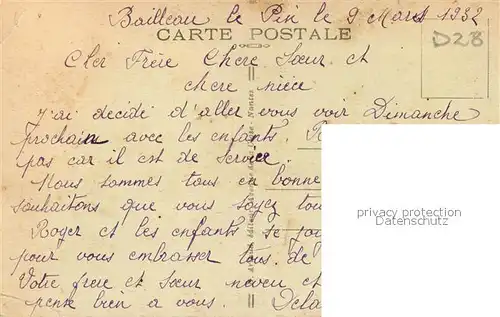 Bailleau le Pin le 9 Mars 1932
CARTE POSTALE
D28
Cher Frère Chere Sœur et
chere nièce
J'ai decidé d'aller vous voir Dimanche
Prochain avec les enfants.
pas car il est de service.
Nous sommes tous en bonne
souhaitons que vous soyez tou
Roger et les enfants se
pour vous embrasser tous. de
Votre frere et sœur neveu et
pense bien a vous.
privacy protection
Datenschutz